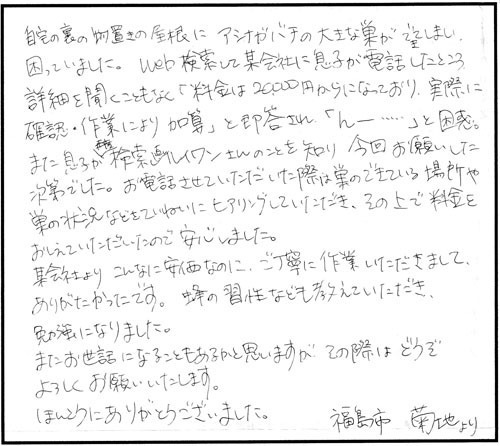 自宅の裏の物置きの屋根に アシナガバチの大きな巣ができてしまい、
困っていました。Web検索して某会社に息子が電話したところ
詳細を聞くこともなく「料金は20,000円からになっており、実際に
確認・作業により加算」と即答され、「んー……」と困惑。
また息子が検索しレイワンさんのことを知り 今回お願いした
次第でした。お電話させていただいた際は巣のできている場所や
巣の状況などをていねいにヒアリングしていただき、その上で料金を
おしえていただいたので安心しました。
某会社より こんなに安価なのに、ご丁寧に作業いただきまして、
ありがたかったです。蜂の習性なども教えていただき、
勉強になりました。
またお世話になることもあるかと思いますが その際は どうぞ
よろしくお願いいたします。
ほんとうにありがとうございました。
福島市 菊地より